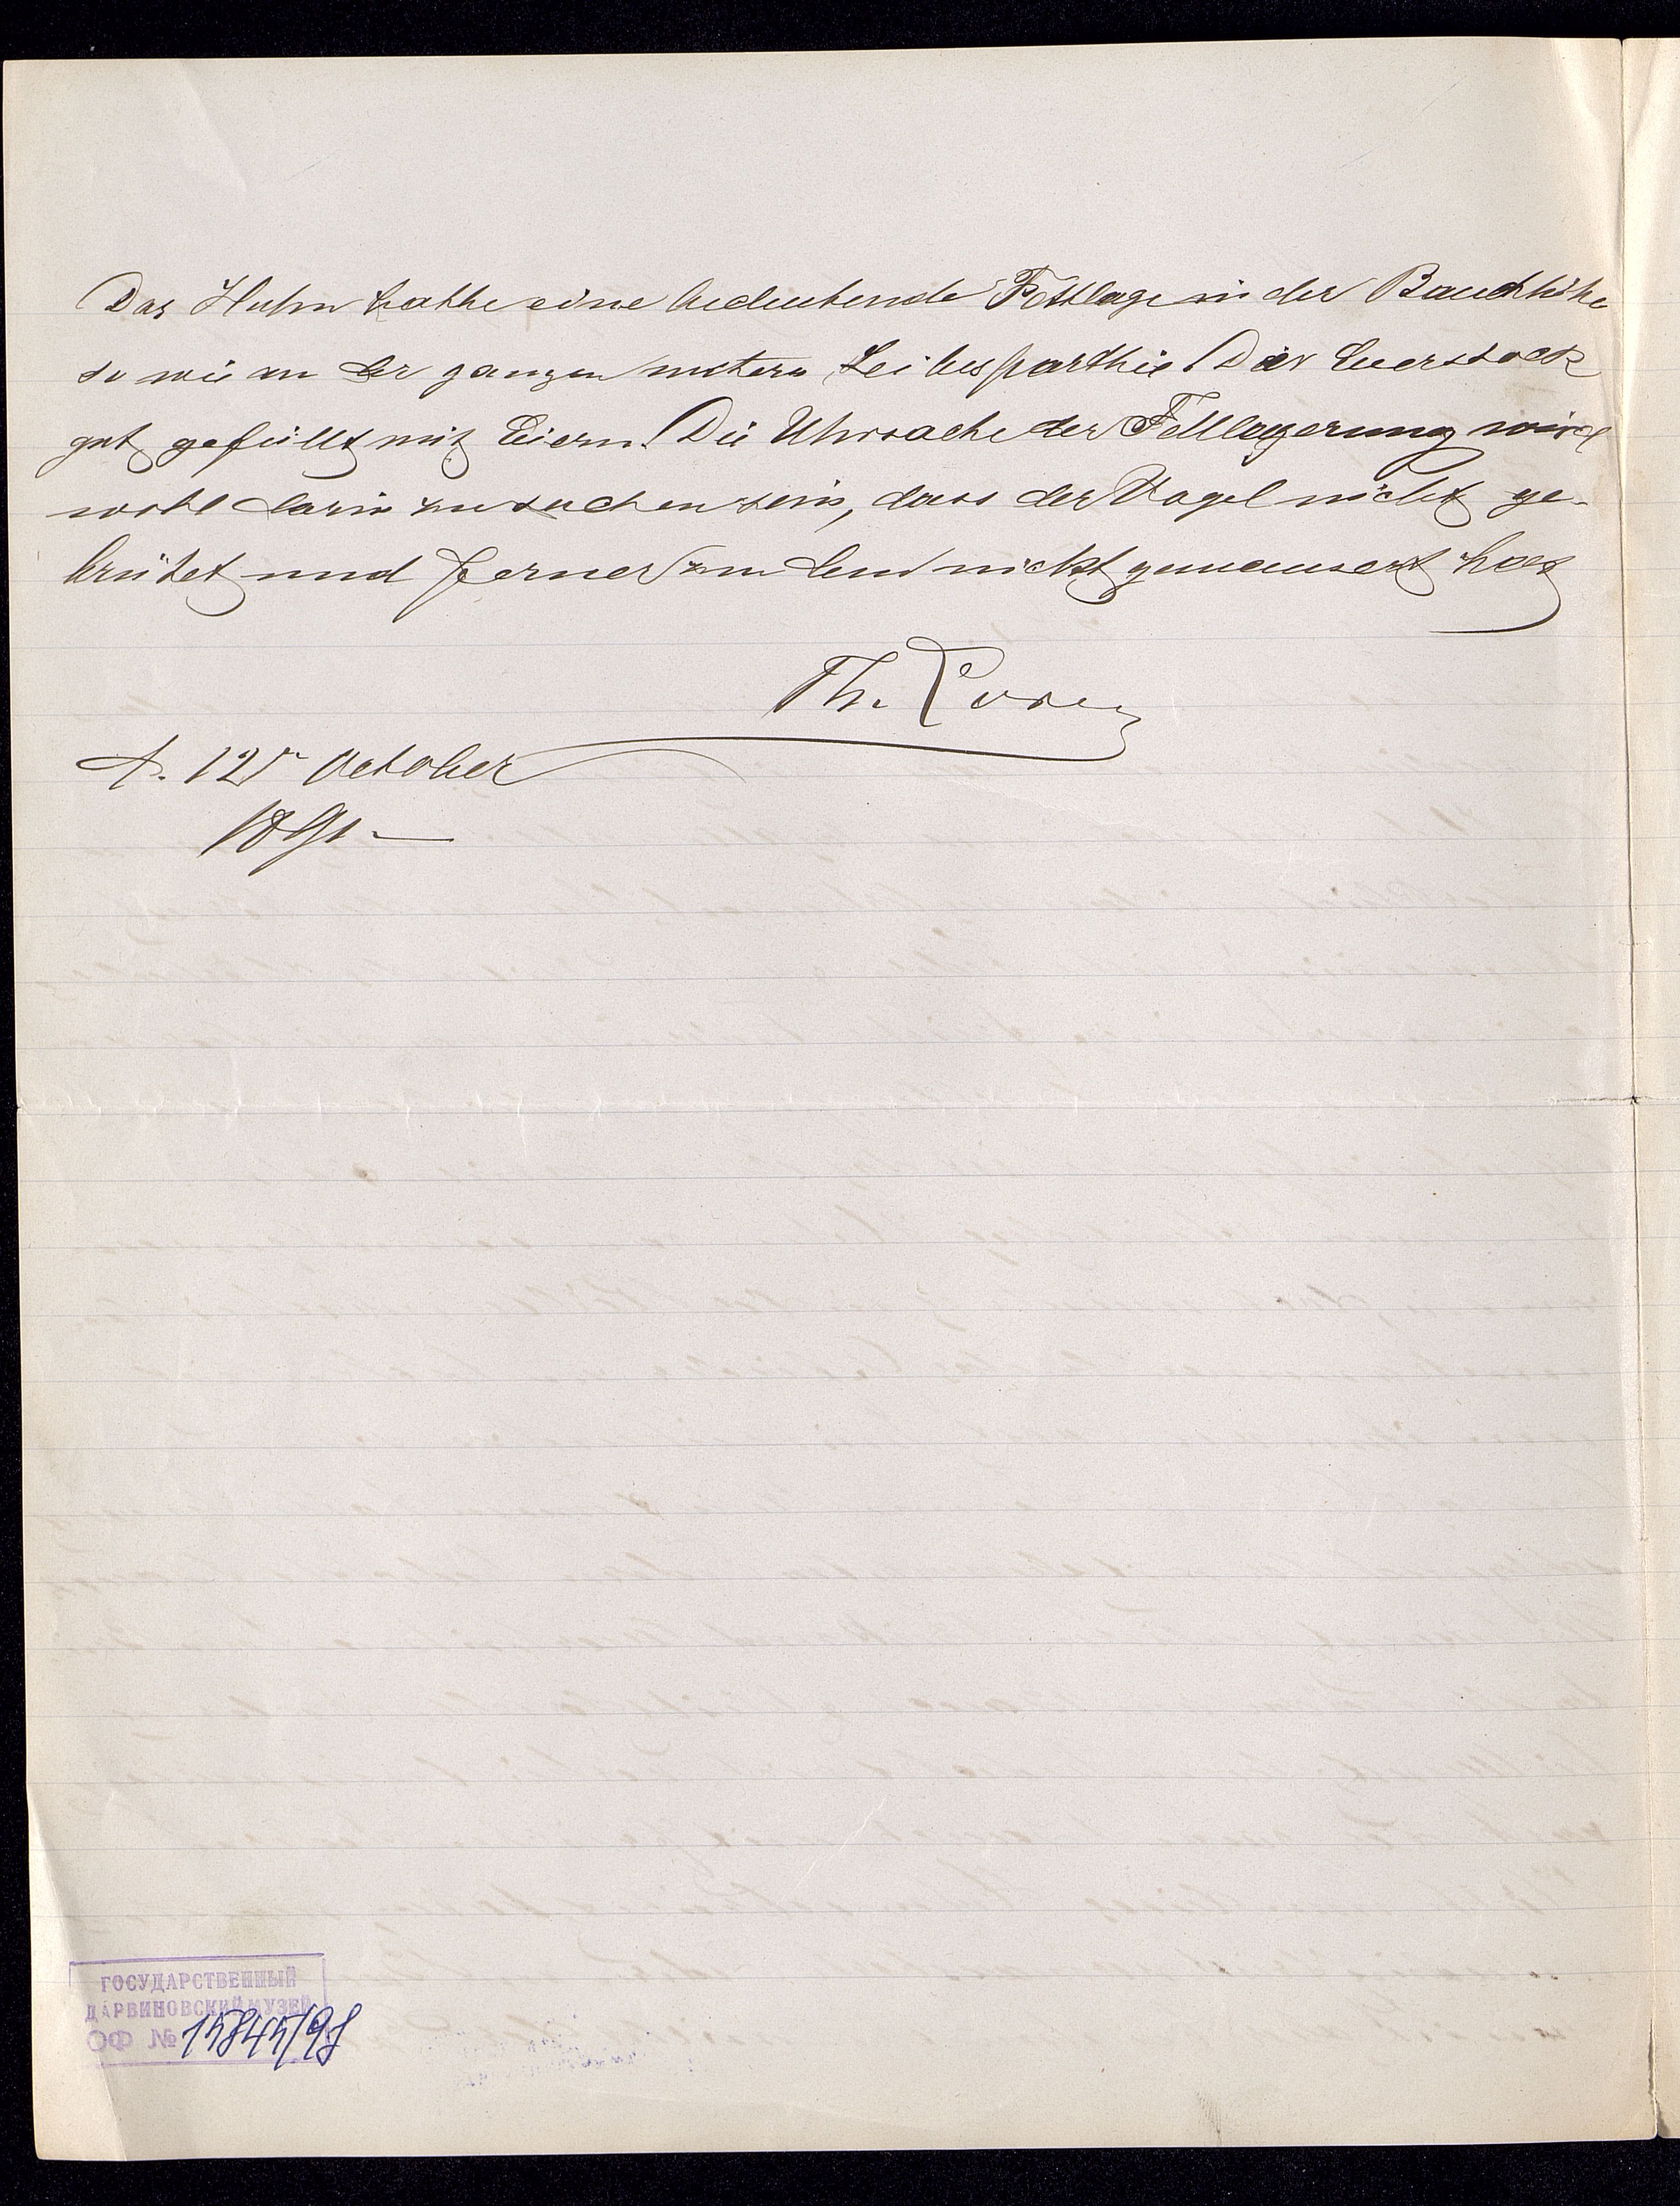 Das Huhn hatte eine bedeutende Fettlage in der Bauchhöhe
so wie an der ganzen untern Leibesparthie! Der Eierstock
gut gefüllt mit Eiern! Die Uhrsache der Fettlagerung wird
wohl darin zu suchen sein, dass der Vogel nicht ge-
brütet und ferner zum nicht gemausert hat
Th. Lorenz
d. 12r October
1891
ГОСУДАРСТВЕННЫЙ
ДАРВИНОВСКИЙ МУЗЕЙ
ОФ № 15845/98